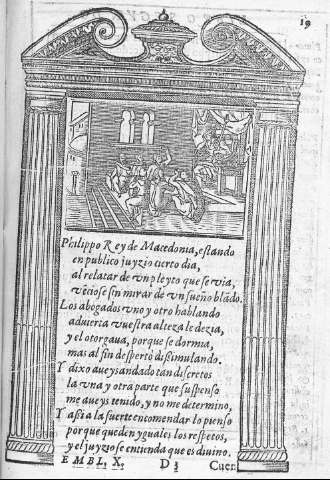 19
Philippo Rey de Macedonia, estando
en publico juyzio cierto dia,
al relatar de vn pleyto que se via,
vēciose sin mirar de vn sueño blādo.
Los abogados vno y otro hablando
aduierta vuestra alteza le dezia,
y el otorgaua, porque se dormia,
mas al fin despertó dissimulando.
Y dixo aueys andado tan discretos
la vna y otra parte que suspenso
me aueys tenido, y no me determino,
Y assi a la suerte encomendar lo pienso
porque queden yguales los respetos,
y el juyzio se entienda que es diuino.
EMBL. X. D 3 Cuer.